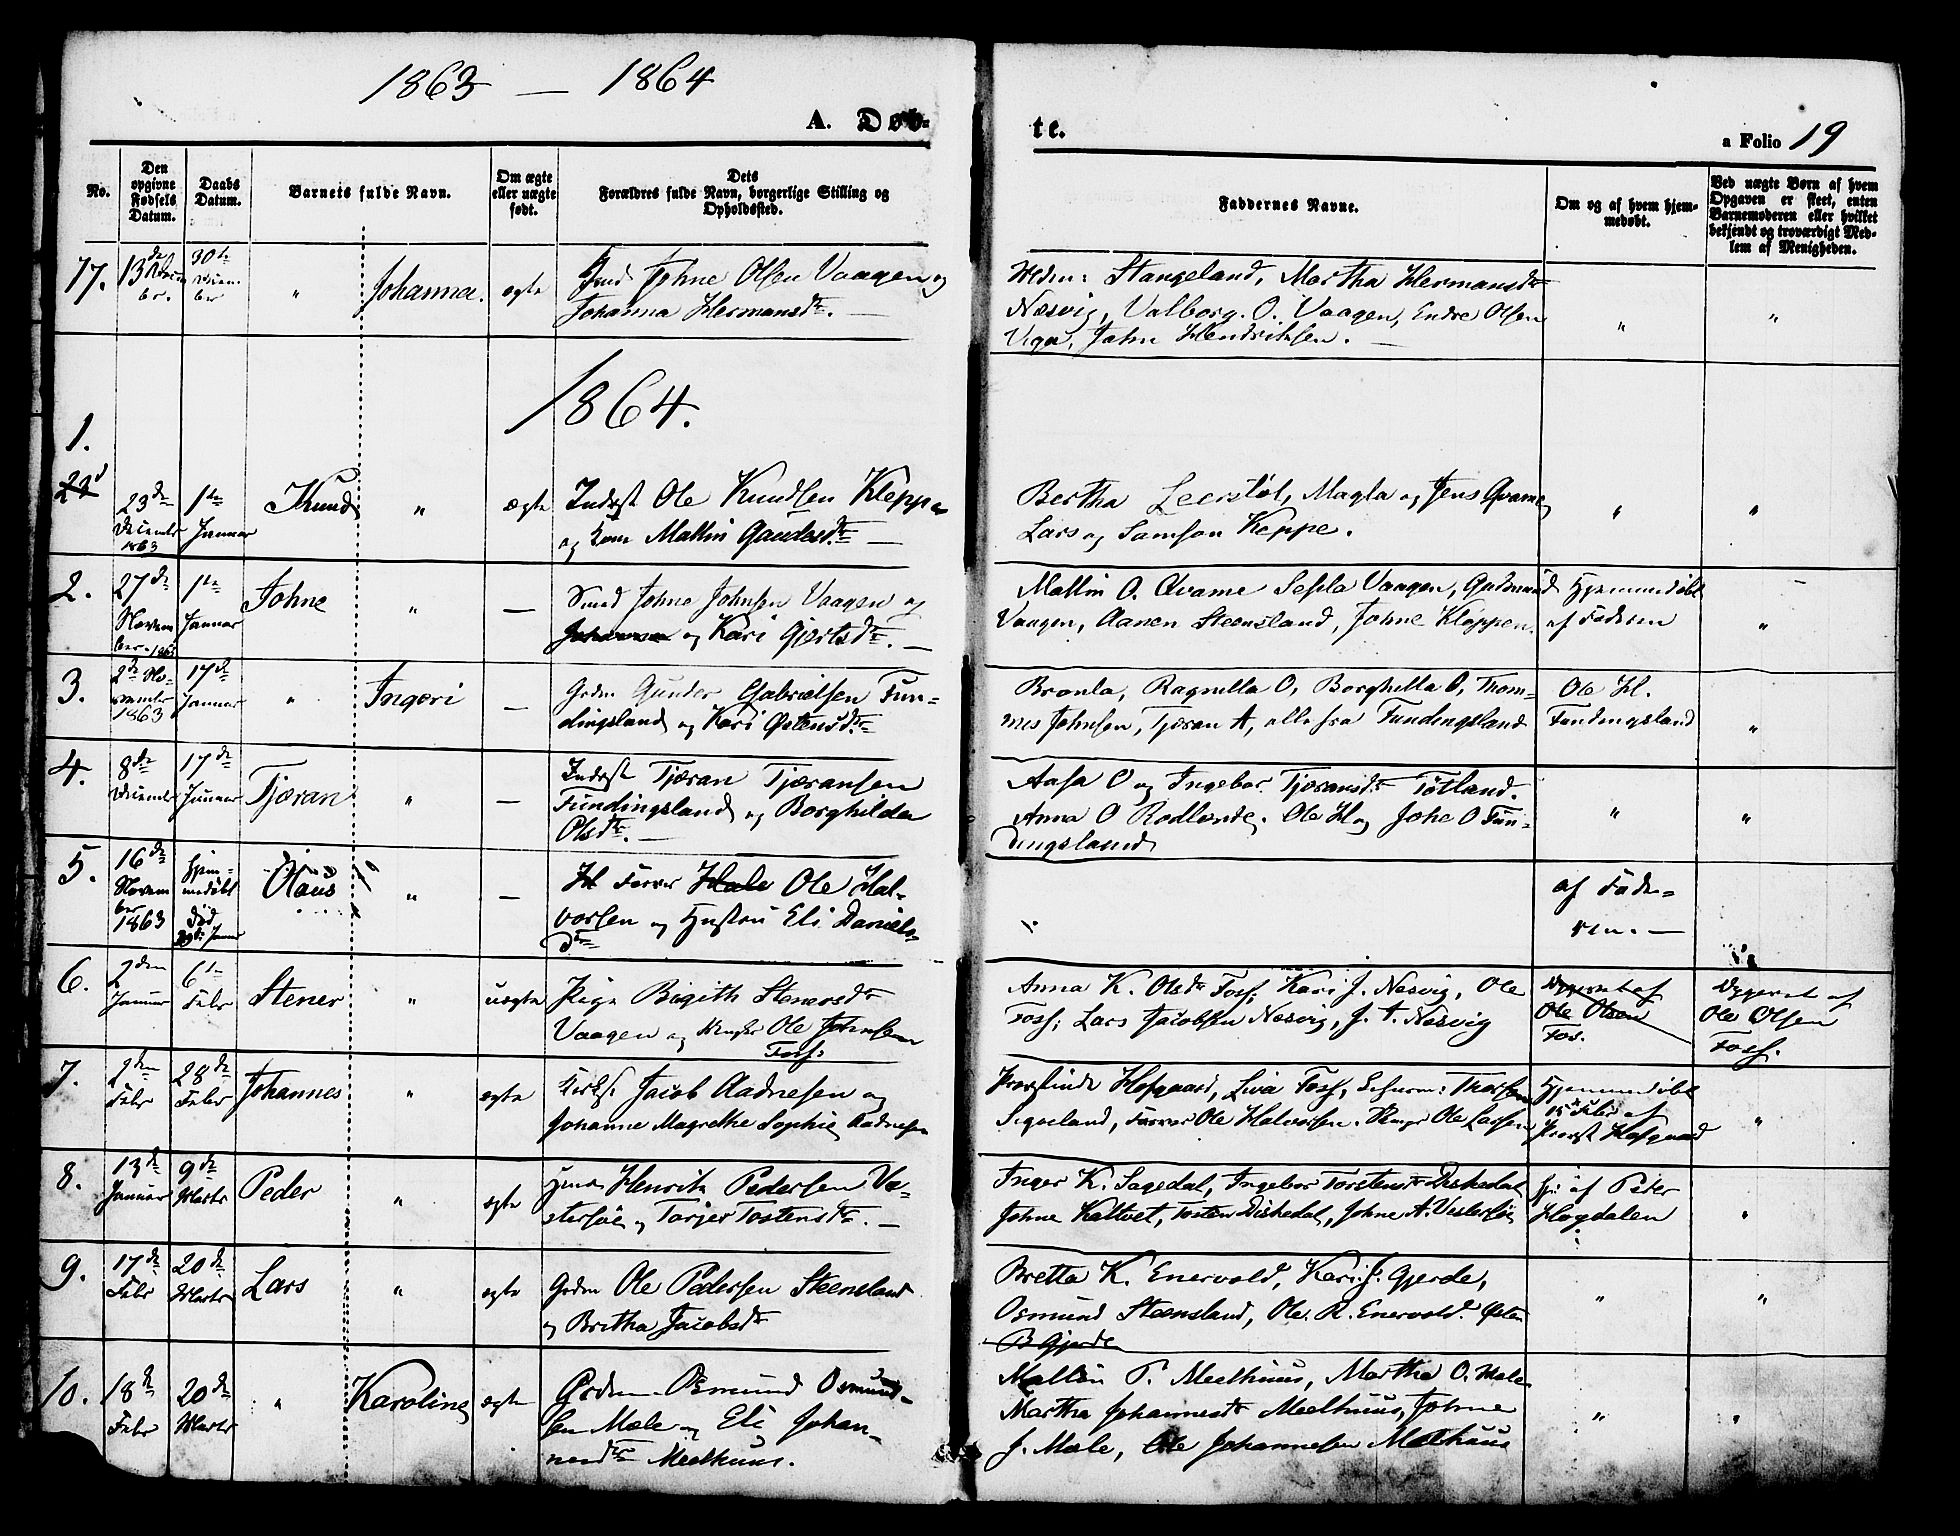 1863 — 1864
A. Døb-
te.
a Folio 19
No.
Den opgivne Fødsels Datum.
Daabs Datum.
Barnets fulde Navn.
Om ægte eller uægte født.
Dets Forældres fulde Navn, borgerlige Stilling og Opholdssted.
Faddernes Navne.
Om og af hvem hjem-
medøbt.
Ved uægte Børn af hvem
Opgaven er skeet, enten
Barnemoderen eller hvilket
bekjendt og troværdigt Med-
lem af Menigheden.
17. 13de 30te " Johanna. ægte Johne Olsen Vaagen og
Johanna Hermansdtr. —
Stangeland, Martha Hermansdtr
Næsvig, Valborg. O. Vaagen, Endre Olsen
Viga, John Hendriksen. — " "
1864.
1.
23de December 1863 1te Januar Knud " ægte Inderst Ole Knudsen Kleppe
og Kone Mallin Gaudesdtr. —
Bertha Leerstøl, Magla og Jens Qvame
Lars og Samson Keppe. " "
2. 27de November 1863 1te Januar Johne " — Johne Johnsen Vaagen og
Johanna og Kari Gjertsdtr. —
Mallin O. Qvame Sesla Vaagen, Gudmund
Vaagen, Aanen Steensland, Johne Kleppen.
Hjemmedøbt
af Faderen "
3. 2de November 1863 17de Januar " Ingeri — Grdm Gunder Gabrielsen Fun-
dingsland og Kari Østensdtr.
Bronla, Ragnilla O, Borghilla O, Thom-
mes Johnsen, Tjæran A, alle fra Fundingsland
Ole H.
Fundingsland "
4. 8de December 17de Januar Tjæran " — Inderst Tjæran Tjæransen
Fundingsland og Borghilda
Olsdtr. —
Aasa O og Ingebor Tjæransdtr Tøtland.
Anna O Rødland. Ole H og Johe O Fun-
dingsland " "
5. 16de November 1863 Hjem-
medøbt
død Januar Olaus " — Farver Ole Hal-
vorsen og Hustru Eli Daniels-
dtr
af Fade-
ren. —
6. 2den Januar 6te Febr Stener " uægte Pige Birgith Stenersdtr
Vaagen og Ole Johnsen
Foss.
Anna K. Olsdtr Foss, Kari J. Næsvig, Ole
Foss, Lars Jacobsen Næsvig, J. A. Næsvig
Opgivet af
Ole Olsen
Fos.
Opgivet af
Ole Olsen
Foss.
7. 2den Febr 28de Febr Johannes " ægte Jacob Aadnesen og
Johanne Magrethe Sophie Aadnesen
Hofgaard, Liva Foss, Thorsen
Sigveland, Farver Ole Halvorsen. Ole Larsen
Hjemmedøbt
15 Febr af
Provst Hofgaard "
8. 13de Januar 9de Marts Peder " ægte Henrik Pedersen Ve-
stersøe og Torjer Tostensdtr. —
Inger K. Sagedal, Ingebor Torstensdtr Diskedal
Johne Kaltvet, Tosten Diskedal, Johne A. Vestersøe
hj: af Peter
Hogdalen "
9. 17de Febr 20de Marts Lars " ægte Grdm Ole Pedersen Steensland
og Britha Jacobsdtr
Bretta K. Enervold, Kari J. Gjerde,
Osmund Steensland, Ole. R. Enervold. Østen
B Gjerde " "
10. 18de Febr 20de Marts " Karoline ægte Grdm Osmund Osmund-
sen Mæle og Eli Johan-
nesdtr Meelhuus.
Mallin P. Meelhuus, Martha O. Mæle
Martha Johannesdtr Meelhuus, Johne
J. Mæle, Ole Johannesen Meelhuus " "